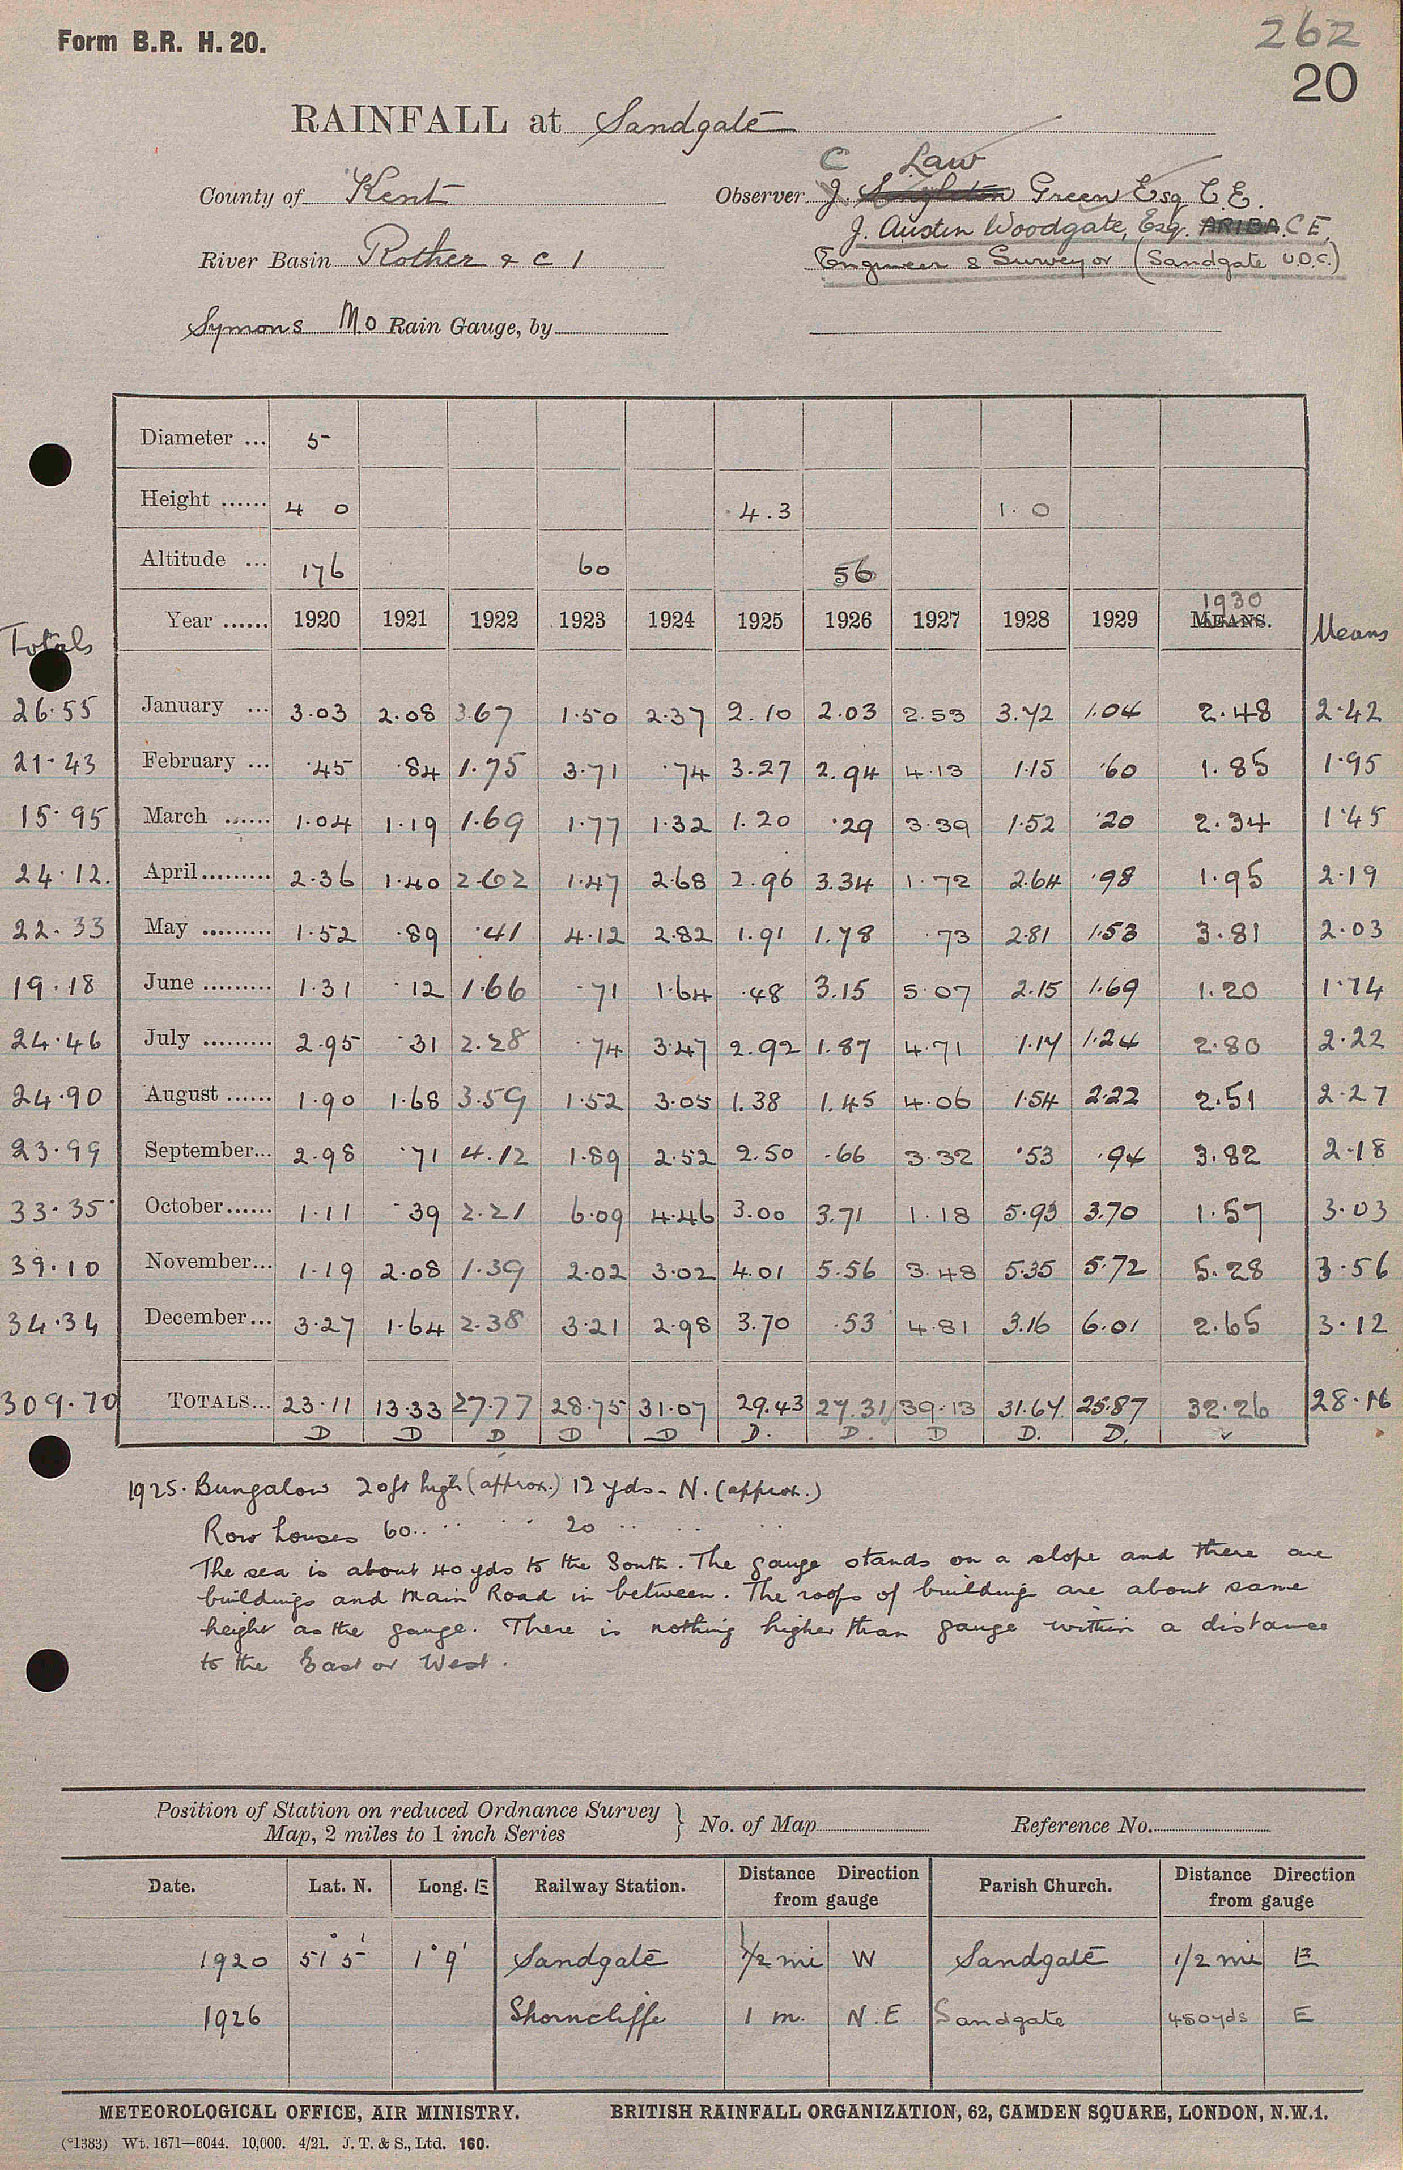 262
Form B.R. H. 20.
20
RAINFALL at Sandgate
C Law
County of Kent Observer J. Singleton Green Esq C.E.
J. Austin Woodgate, Esq. ARIBA. C E,
River Basin Rother & C 1 Engineer & Surveyor (Sandgate U.D.C.)
Symons Mo Rain Gauge, by
Diameter ... 5
Height ...... 4 0 4.3 1.0
Altitude ... 176 60 56
1930
Totals Year ...... 1920 1921 1922 1923 1924 1925 1926 1927 1928 1929 MEANS. Means
26.55 January ... 3.03 2.08 3.67 1.50 2.37 2.10 2.03 2.53 3.72 1.04 2.48 2.42
21.43 February ... .45 .84 1.75 3.71 .74 3.27 2.94 4.13 1.15 .60 1.85 1.95
15.95 March ...... 1.04 1.19 1.69 1.77 1.32 1.20 .29 3.39 1.52 .20 2.34 1.45
24.12. April......... 2.36 1.40 2.62 1.47 2.68 2.96 3.34 1.72 2.64 .98 1.95 2.19
22.33 May ......... 1.52 .89 .41 4.12 2.82 1.91 1.78 .73 2.81 1.53 3.81 2.03
19.18 June ......... 1.31 .12 1.66 .71 1.64 .48 3.15 5.07 2.15 1.69 1.20 1.74
24.46 July ......... 2.95 .31 2.28 .74 3.47 2.92 1.87 4.71 1.17 1.24 2.80 2.22
24.90 August ...... 1.90 1.68 3.59 1.52 3.05 1.38 1.45 4.06 1.54 2.22 2.51 2.27
23.99 September... 2.98 .71 4.12 1.89 2.52 2.50 .66 3.32 .53 .94 3.82 2.18
33.35 October...... 1.11 .39 2.21 6.09 4.46 3.00 3.71 1.18 5.93 3.70 1.57 3.03
39.10 November... 1.19 2.08 1.39 2.02 3.02 4.01 5.56 3.48 5.35 5.72 5.28 3.56
34.34 December... 3.27 1.64 2.38 3.21 2.98 3.70 .53 4.81 3.16 6.01 2.65 3.12
309.70 TOTALS... 23.11 13.33 27.77 28.75 31.07 29.43 27.31 39.13 31.67 25.87 32.26 28.16
D D D D D D. D. D D. D. ✓
1925. Bungalow 20ft high (approx.) 12 yds. N. (approx.)
Row houses 60 .. .. .. 20 .. .. ..
The sea is about 40 yds to the South. The gauge stands on a slope and there are
buildings and Main Road in between. The roofs of buildings are about same
height as the gauge. There is nothing higher than gauge within a distance
to the East or West.
Position of Station on reduced Ordnance Survey
Map, 2 miles to 1 inch Series } No. of Map Reference No.
Date. Lat. N. Long. E Railway Station. Distance Direction from gauge Parish Church. Distance Direction from gauge
1920 51° 5' 1° 9' Sandgate 1/2 mi W Sandgate 1/2 mi E
1926 Shorncliffe 1 m. N.E Sandgate 450yds E
METEOROLOGICAL OFFICE, AIR MINISTRY. BRITISH RAINFALL ORGANIZATION, 62, CAMDEN SQUARE, LONDON, N.W.1.
(*1383) Wt. 1671—6044. 10,000. 4/21. J. T. & S., Ltd. 160.